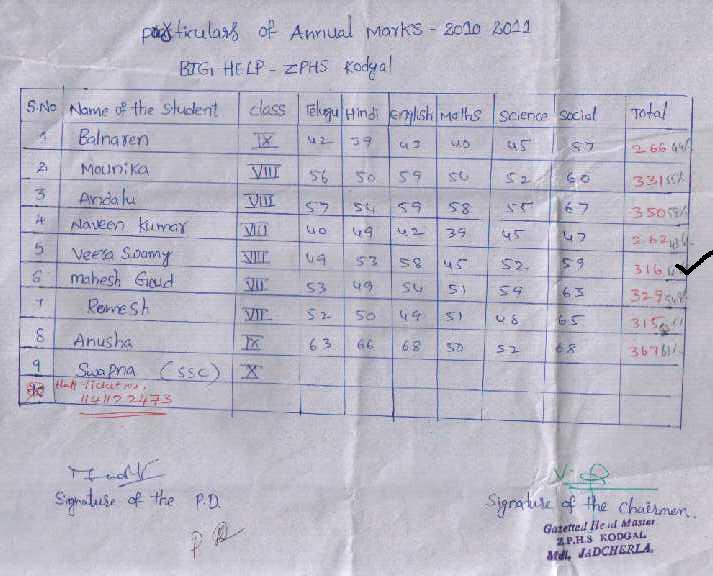 particulars of Annual Marks - 2010 2011
BIG HELP - ZPHS Kodgal
S.No Name of the Student class Telugu Hindi English Maths Science Social Total
1 Balnaren IX 42 39 43 40 45 57 266 44%
2 Mounika VIII 56 50 59 54 52 60 331 55%
3 Andalu VIII 57 54 59 58 55 67 350 58%
4 Naveen Kumar VIII 40 49 42 39 45 47 262
5 Veera Swamy VIII 49 53 58 45 52 59 316
6 mahesh Goud VII 53 49 54 51 59 63 329
7 Ramesh VII 52 50 49 51 48 65 315
8 Anusha IX 63 66 68 50 52 68 367 61%
9 Swapna (SSC) X
Hall Ticket no.
1141122473
Signature of the P.D.
P D
Signature of the Chairmen.
Gazetted Head Master
Z.P.H.S KODGAL
Mdl. JADCHERLA.